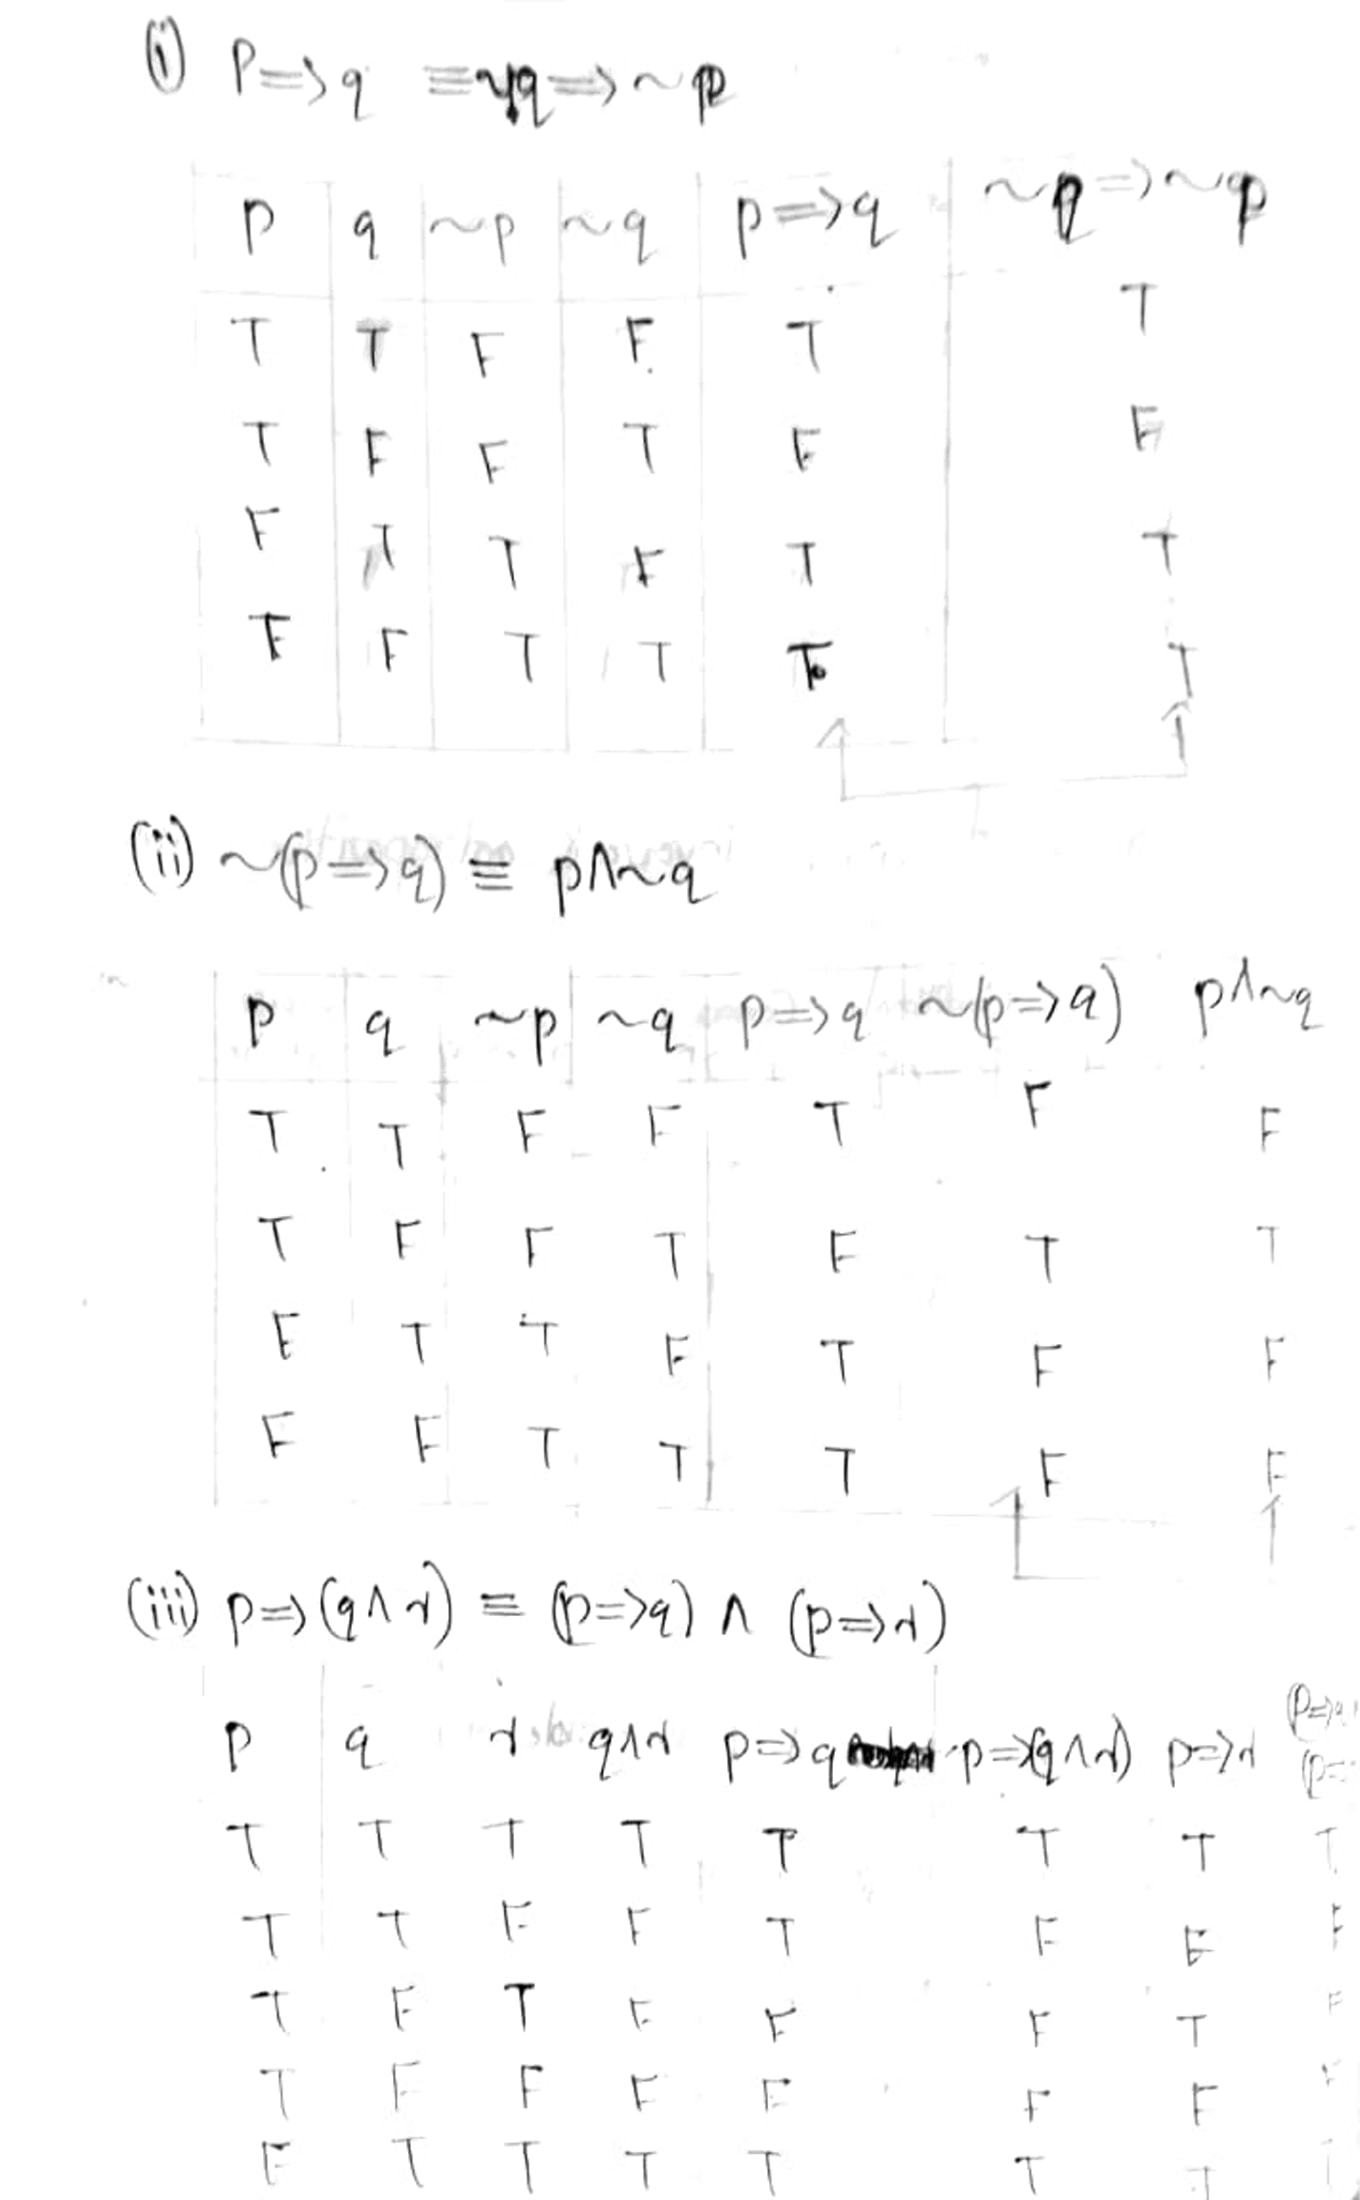 (i) p=>q ≡ ~q=>~p
p q ~p ~q p=>q ~q=>~p
T T F F T T
T F F T F F
F T T F T T
F F T T T T
(ii) ~(p=>q) ≡ p∧~q
p q ~p ~q p=>q ~(p=>q) p∧~q
T T F F T F F
T F F T F T T
F T T F T F F
F F T T T F F
(iii) p=>(q∧r) ≡ (p=>q) ∧ (p=>r)
p q r q∧r p=>q p=>(q∧r) p=>r (p=>q) (p=>
T T T T T T T T
T T F F T F F F
T F T F F F T F
T F F F F F F F
F T T T T T T T